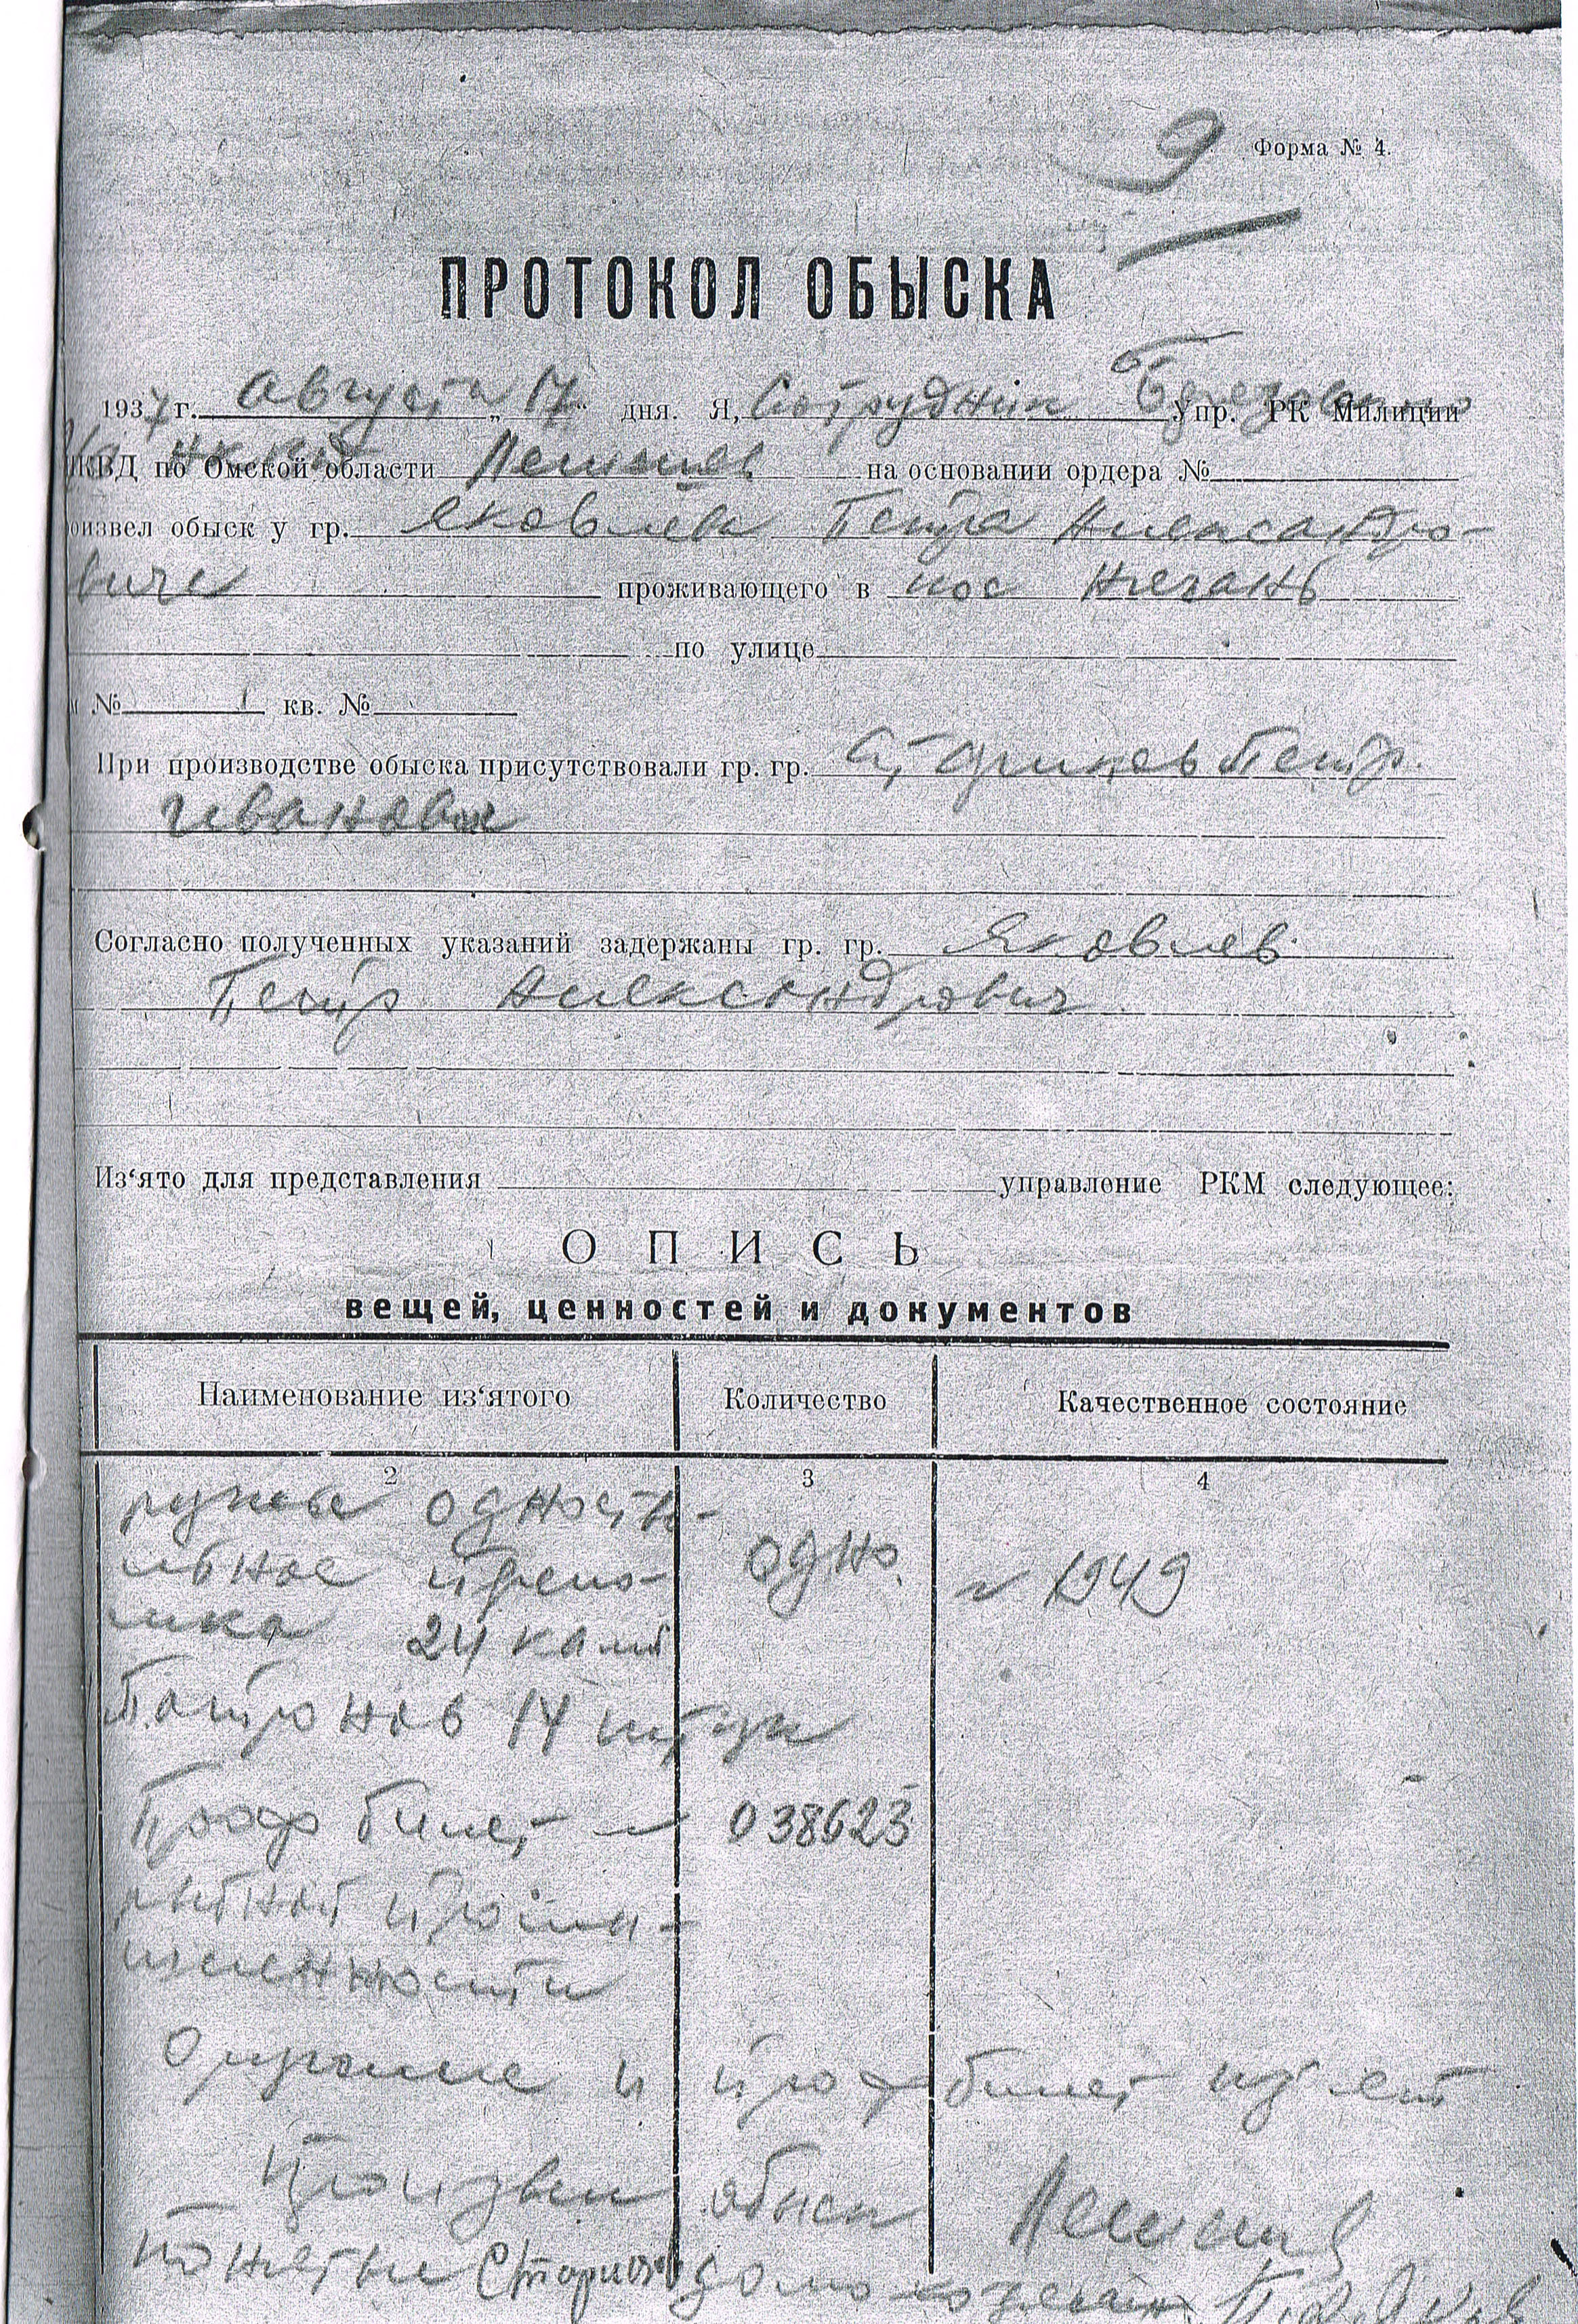 9 Форма № 4.
ПРОТОКОЛ ОБЫСКА
1937 г. августа „17“ дня. Я, Сотрудник Упр. РК Милиции
НКВД по Омской области на основании ордера №
оизвел обыск у гр. Яковлева Петра Александро-
виче проживающего в пос Нягань
по улице
№ кв. №
При производстве обыска присутствовали гр. гр. Петр
Иванович
Согласно полученных указаний задержаны гр. гр. Яковлев
Петр Александрович
Из‘ято для представления управление РКМ следующее:
ОПИСЬ
вещей, ценностей и документов
Наименование из‘ятого Количество Качественное состояние
2 3 4
ружье одноств-
льное одно № 1949
24 калиб
Патронов 14 штук
Проф билет № 038623
рыбной промы-
шленности
Оружие и профбилет из'ят
Произвел обыск
понятые домохозяин